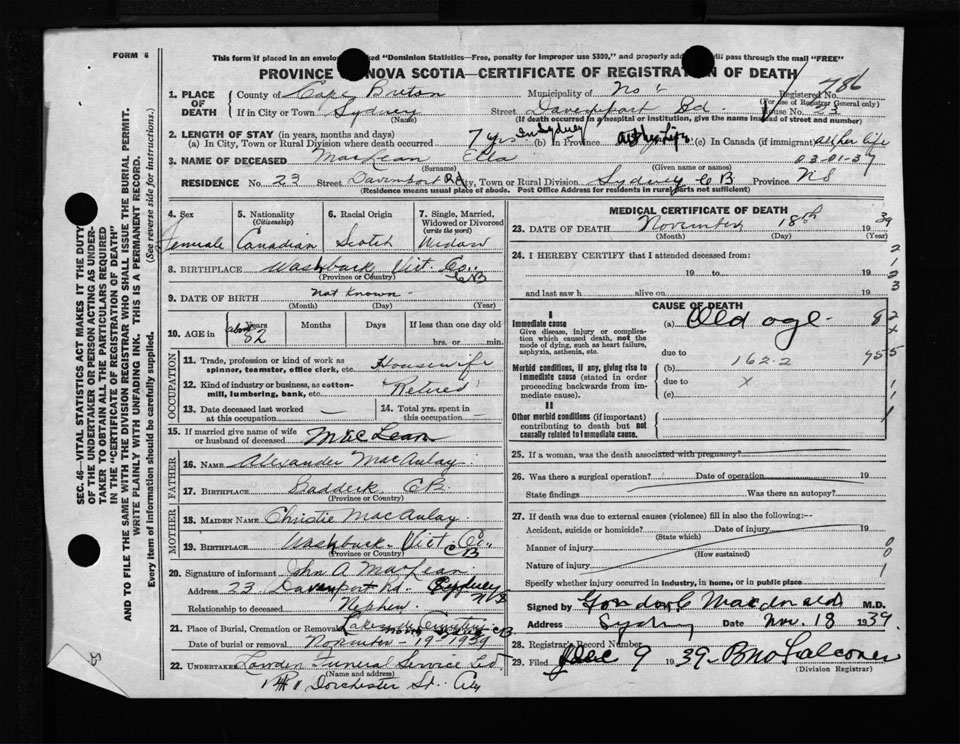 FORM 6
This form if placed in an envelope "Dominion Statistics—Free, penalty for improper use $300," and properly will pass through the mail "FREE"
PROVINCE NOVA SCOTIA—CERTIFICATE OF REGISTRATION OF DEATH
1. PLACE OF DEATH
County of Cape Breton Municipality of No 1 Registered No. 786
(For use of Registrar General only)
If in City or Town Sydney Street Davenport Rd. House No. 23
(Name) (If death occurred in a hospital or institution, give the name instead of street and number)
2. LENGTH OF STAY (in years, months and days)
(a) In City, Town or Rural Division where death occurred 7 yrs In Sydney (b) In Province All her Life (c) In Canada (if immigrant) all her life
3. NAME OF DECEASED MacLean Ella 03-01-37
(Surname) (Given name or names)
RESIDENCE No. 23 Street Davenport Rd City, Town or Rural Division Sydney C B Province NS
(Residence means usual place of abode. Post Office Address for residents in rural parts not sufficient)
4. Sex Female
5. Nationality (Citizenship) Canadian
6. Racial Origin Scotch
7. Single, Married, Widowed or Divorced (write the word) Widow
8. BIRTHPLACE Washback Vict. Co., CB
(Province or Country)
9. DATE OF BIRTH Not Known
(Month) (Day) (Year)
10. AGE in Years Months Days If less than one day old
about 82 hrs. or min.
OCCUPATION
11. Trade, profession or kind of work as spinner, teamster, office clerk, etc. Housewife
12. Kind of industry or business, as cotton-mill, lumbering, bank, etc. Retired
13. Date deceased last worked at this occupation —
14. Total yrs. spent in this occupation —
15. If married give name of wife or husband of deceased MacLean
FATHER
16. NAME Alexander MacAulay
17. BIRTHPLACE Baddeck CB.
(Province or Country)
MOTHER
18. MAIDEN NAME Christie MacAulay
19. BIRTHPLACE Washback Vict. Co., CB
(Province or Country)
20. Signature of informant John A MacLean
Address 23 Davenport Rd. Sydney NS
Relationship to deceased Nephew
21. Place of Burial, Cremation or Removal Lakeside Cemetery C.B.
Date of burial or removal November - 19 - 1939
22. UNDERTAKER Lowden Funeral Service Ltd
(Name and address)
Dorchester St. City
MEDICAL CERTIFICATE OF DEATH
23. DATE OF DEATH November 18th 1939
(Month) (Day)
24. I HEREBY CERTIFY that I attended deceased from:
19 to 19
and last saw h alive on 19
2
1
3
3
CAUSE OF DEATH
I
Immediate cause
Give disease, injury or complication which caused death, not the mode of dying, such as heart failure, asphyxia, asthenia, etc.
(a) Old age 82
due to
Morbid conditions, if any, giving rise to immediate cause (stated in order proceeding backwards from immediate cause).
(b) 162.2
due to x
(c)
II
Other morbid conditions (if important) contributing to death but not causally related to immediate cause.
25. If a woman, was the death associated with pregnancy?
26. Was there a surgical operation? Date of operation 19
State findings Was there an autopsy?
27. If death was due to external causes (violence) fill in also the following:—
Accident, suicide or homicide? Date of injury 19
(State which)
Manner of injury 0
(How sustained) 0
Nature of injury 1
Specify whether injury occurred in industry, in home, or in public place
Signed by Macdonald M.D.
Address Sydney Date Nov. 18 1939.
28. Registrar's Record Number
29. Filed Dec 9 1939 Falconer
(Division Registrar)
SEC. 46—VITAL STATISTICS ACT MAKES IT THE DUTY OF THE UNDERTAKER OR PERSON ACTING AS UNDERTAKER TO OBTAIN ALL THE PARTICULARS REQUIRED IN THE "CERTIFICATE OF REGISTRATION OF DEATH"
AND TO FILE THE SAME WITH THE DIVISION REGISTRAR WHO SHALL ISSUE THE BURIAL PERMIT.
WRITE PLAINLY WITH UNFADING INK. THIS IS A PERMANENT RECORD.
Every item of information should be carefully supplied. (See reverse side for instructions.)